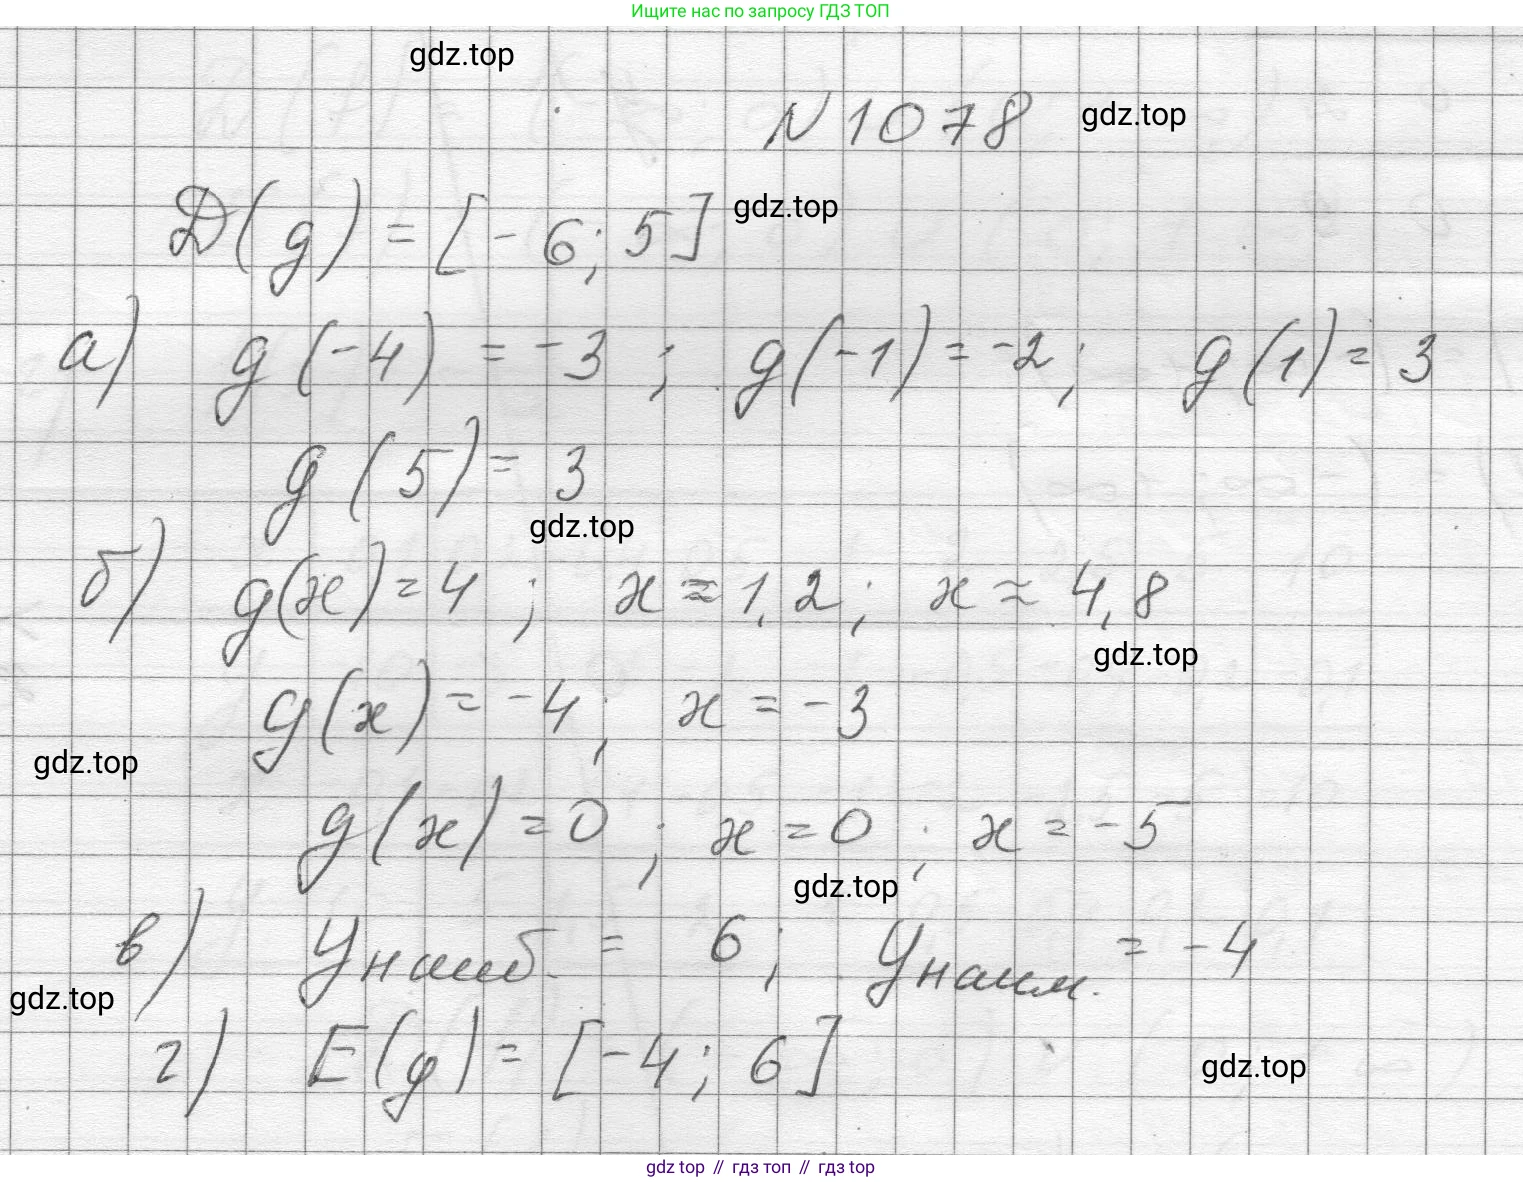 Ищите нас по запросу ГДЗ ТОП
gdz.top
N 1078 gdz.top
D(g) = [-6; 5] gdz.top
а) g(-4) = -3; g(-1) = -2; g(1) = 3
g(5) = 3
gdz.top
б) g(x) = 4; x ≈ 1,2; x ≈ 4,8
gdz.top
g(x) = -4; x = -3
gdz.top
g(x) = 0; x = 0; x = -5
gdz.top
в) Yнаиб. = 6; Yнаим. = -4
gdz.top
г) E(g) = [-4; 6]
gdz.top
gdz top // гдз топ // гдз top